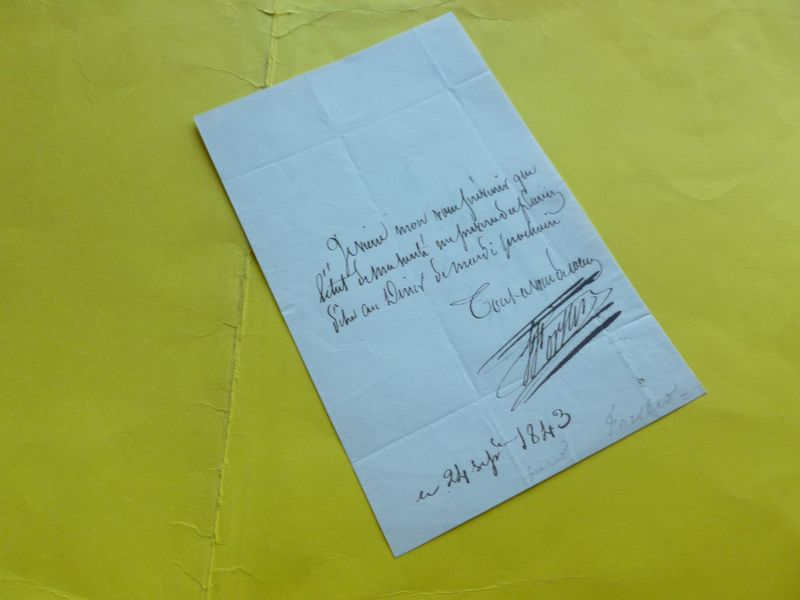 Je viens mon vous prévenir que
l'état de ma santé me privera du plaisir
d'être au Diner de mardi prochain
Tout a vous de cœur
ce 24 7bre 1843